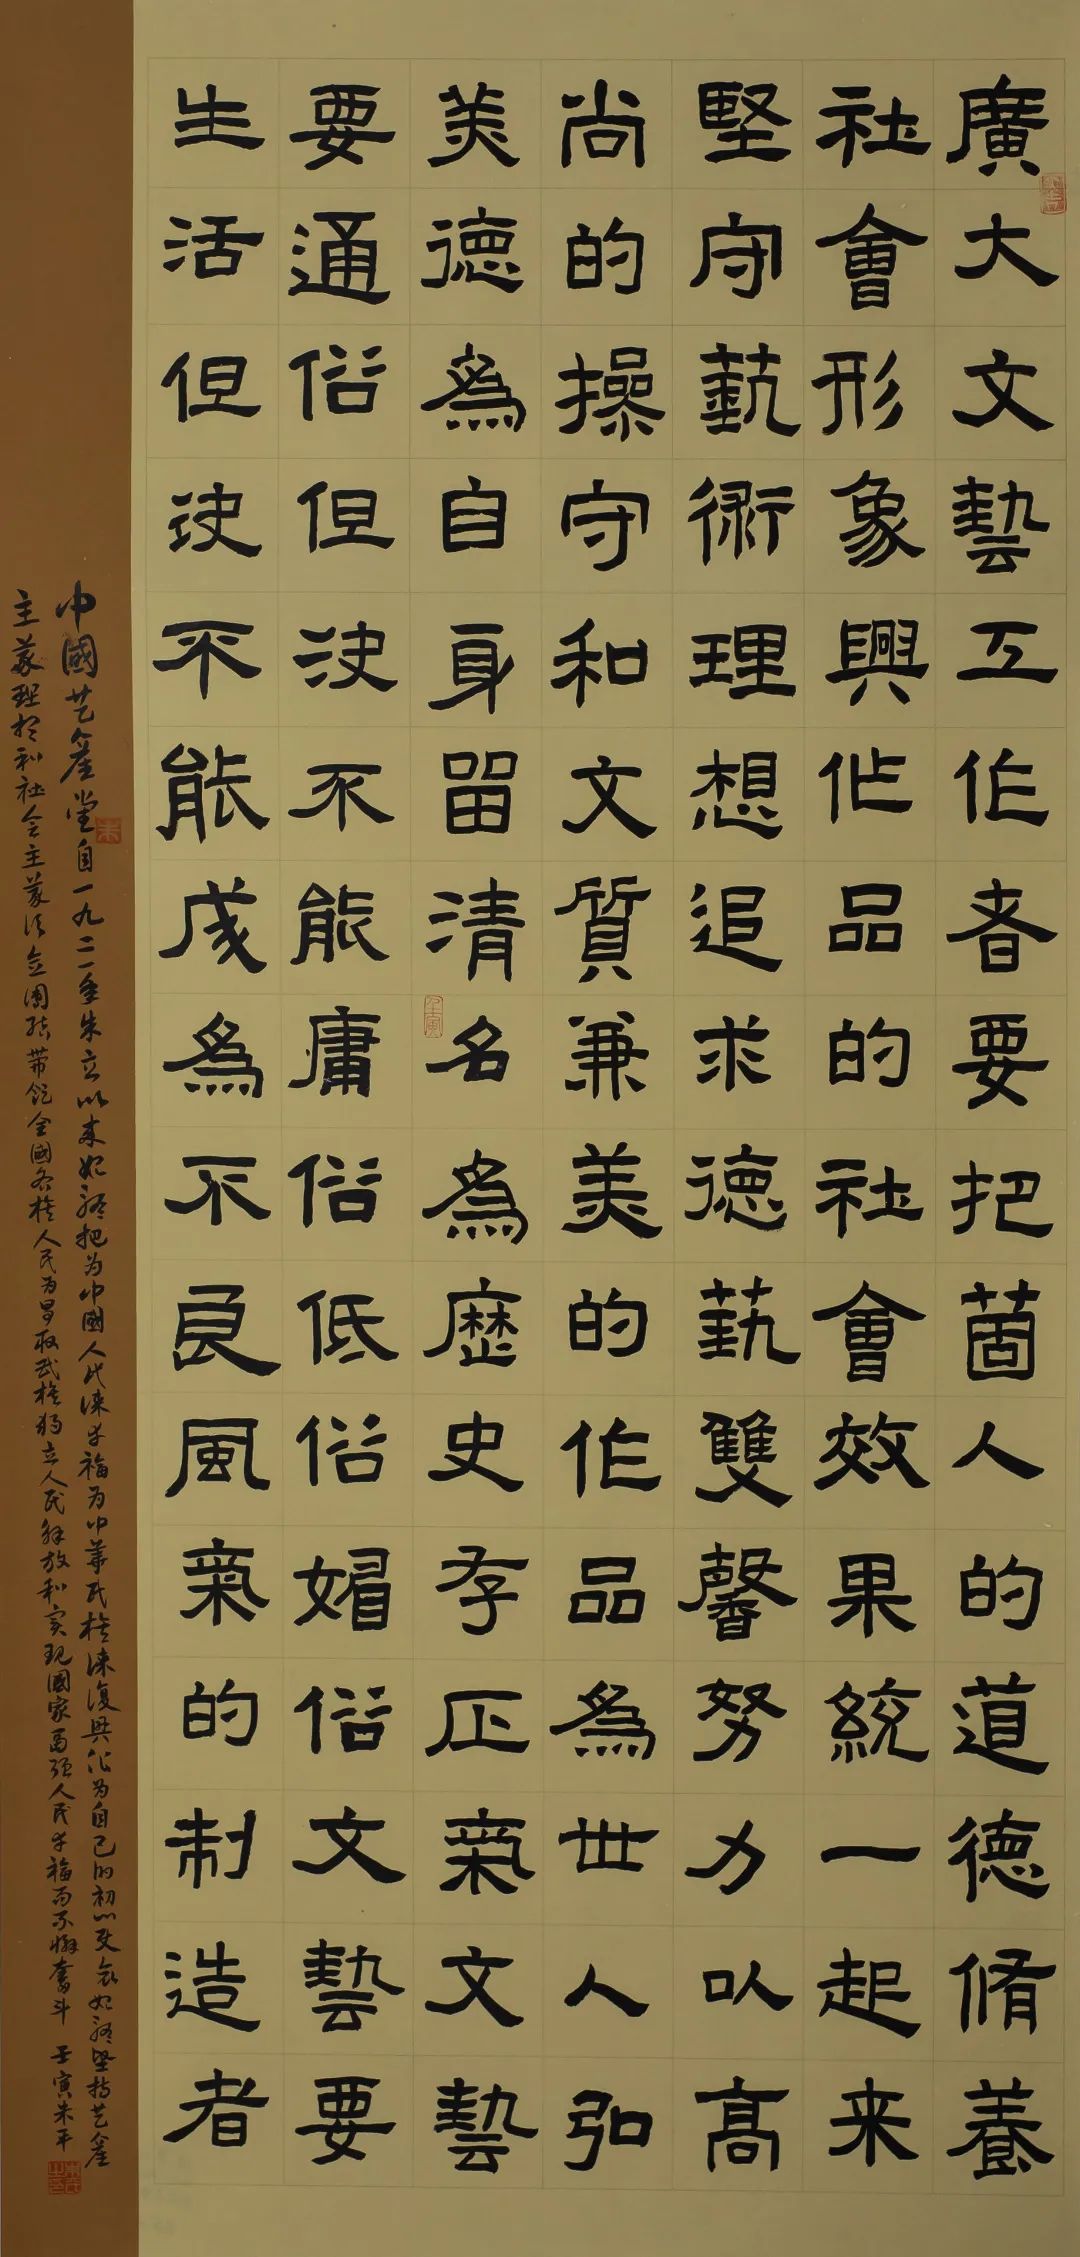 廣大文藝工作者要把箇人的道德脩養
社會形象與作品的社會效果統一起来
堅守藝術理想追求德藝雙馨努力以高
尚的操守和文質兼美的作品為世人弘
美德為自身留清名為歷史存正氣文藝
要通俗但決不能庸俗低俗媚俗文藝要
生活但決不能成為不良風氣的制造者
中國共產党自一九二一年成立以来始终把为中國人民谋幸福为中華民族谋復興作为自己的初心使命始终坚持共產
主義理想和社会主義信念團结带领全國各族人民为争取民族獨立人民解放和实现國家富强人民幸福而不懈奮斗 壬寅朱平
壬寅